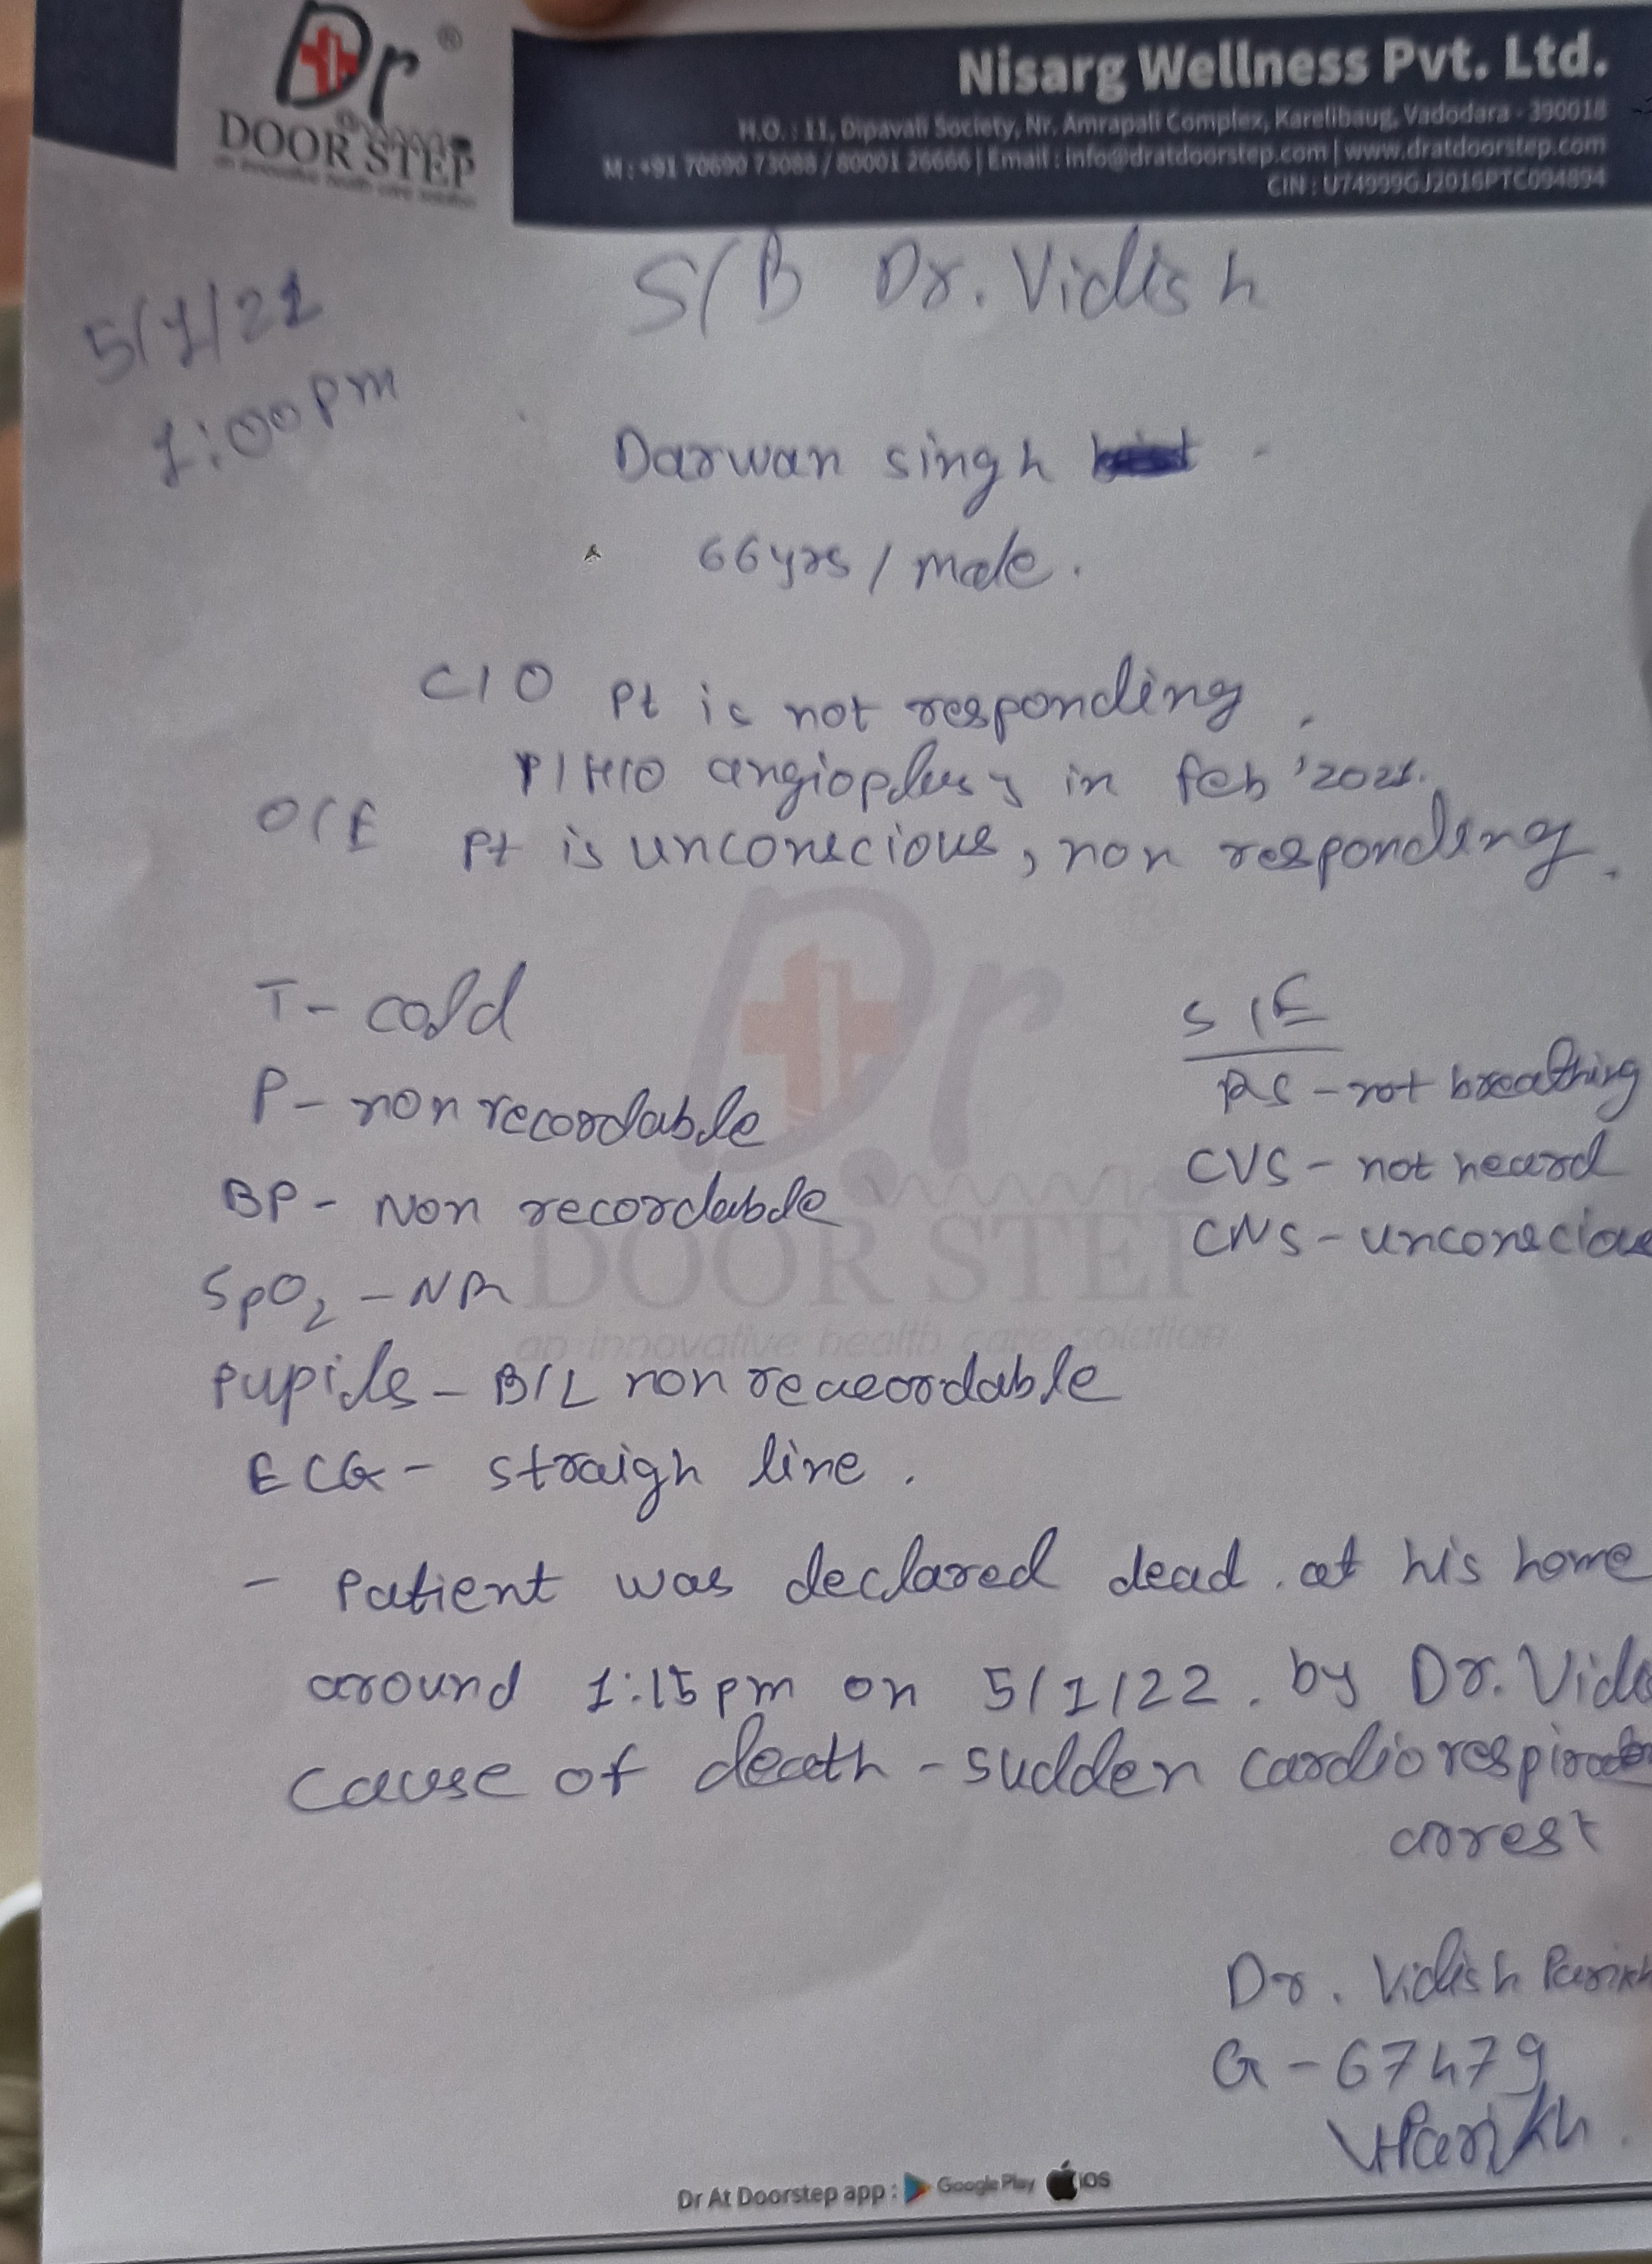 Dr ®
@
DOOR STEP
an innovative health care solution
Nisarg Wellness Pvt. Ltd.
H.O. : 11, Dipavali Society, Nr. Amrapali Complex, Karelibaug, Vadodara - 390018
M : +91 70690 73088 / 80001 26666 | Email : info@dratdoorstep.com | www.dratdoorstep.com
CIN : U74999GJ2016PTC094894
5/1/21
1:00pm
S/B Dr. Vidish
Darwan singh
66yrs / male.
C/O Pt is not responding.
P/H/O angioplasy in feb '2021.
O/E Pt is unconscious, non responding.
T- cold
P- non recordable
BP- Non recordable
SpO2 - NR
Pupils - B/L non recaordable
ECG - straigh line.
S/E
RS - not breathing
CVS - not heard
CNS - unconsciou
- Patient was declared dead. at his home
around 1:15pm on 5/1/22. by Dr. Vidi
cause of death - sudden cardiorespirato
arrest
Dr. Vidish Parikh
G - 67479
VParikh
Dr
DOOR STEP
an innovative health care solution
Dr At Doorstep app : Google Play iOS